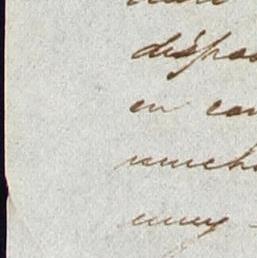 dispos
en con
mucho
muy